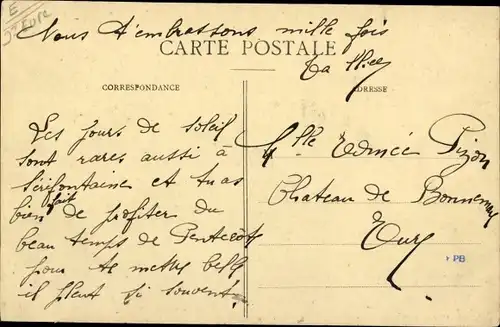 E
Eure
Nous t'embrassons mille fois
CARTE POSTALE
Ta
CORRESPONDANCE
ADRESSE
Les jours de soleil
sont rares aussi à
Sérifontaine et tu as
bien fait de profiter du
beau temps de Pentecôte
pour te mettre belle
il pleut si souvent.
Mlle Edmée
Chateau de
Eure
PB